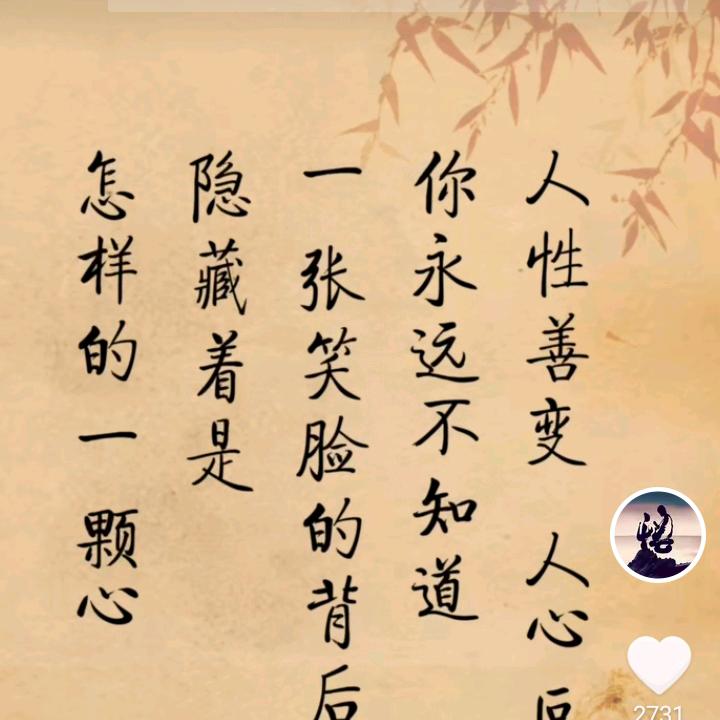 人性善变 人心
你永远不知道
一张笑脸的背后
隐藏着是
怎样的一颗心
2731